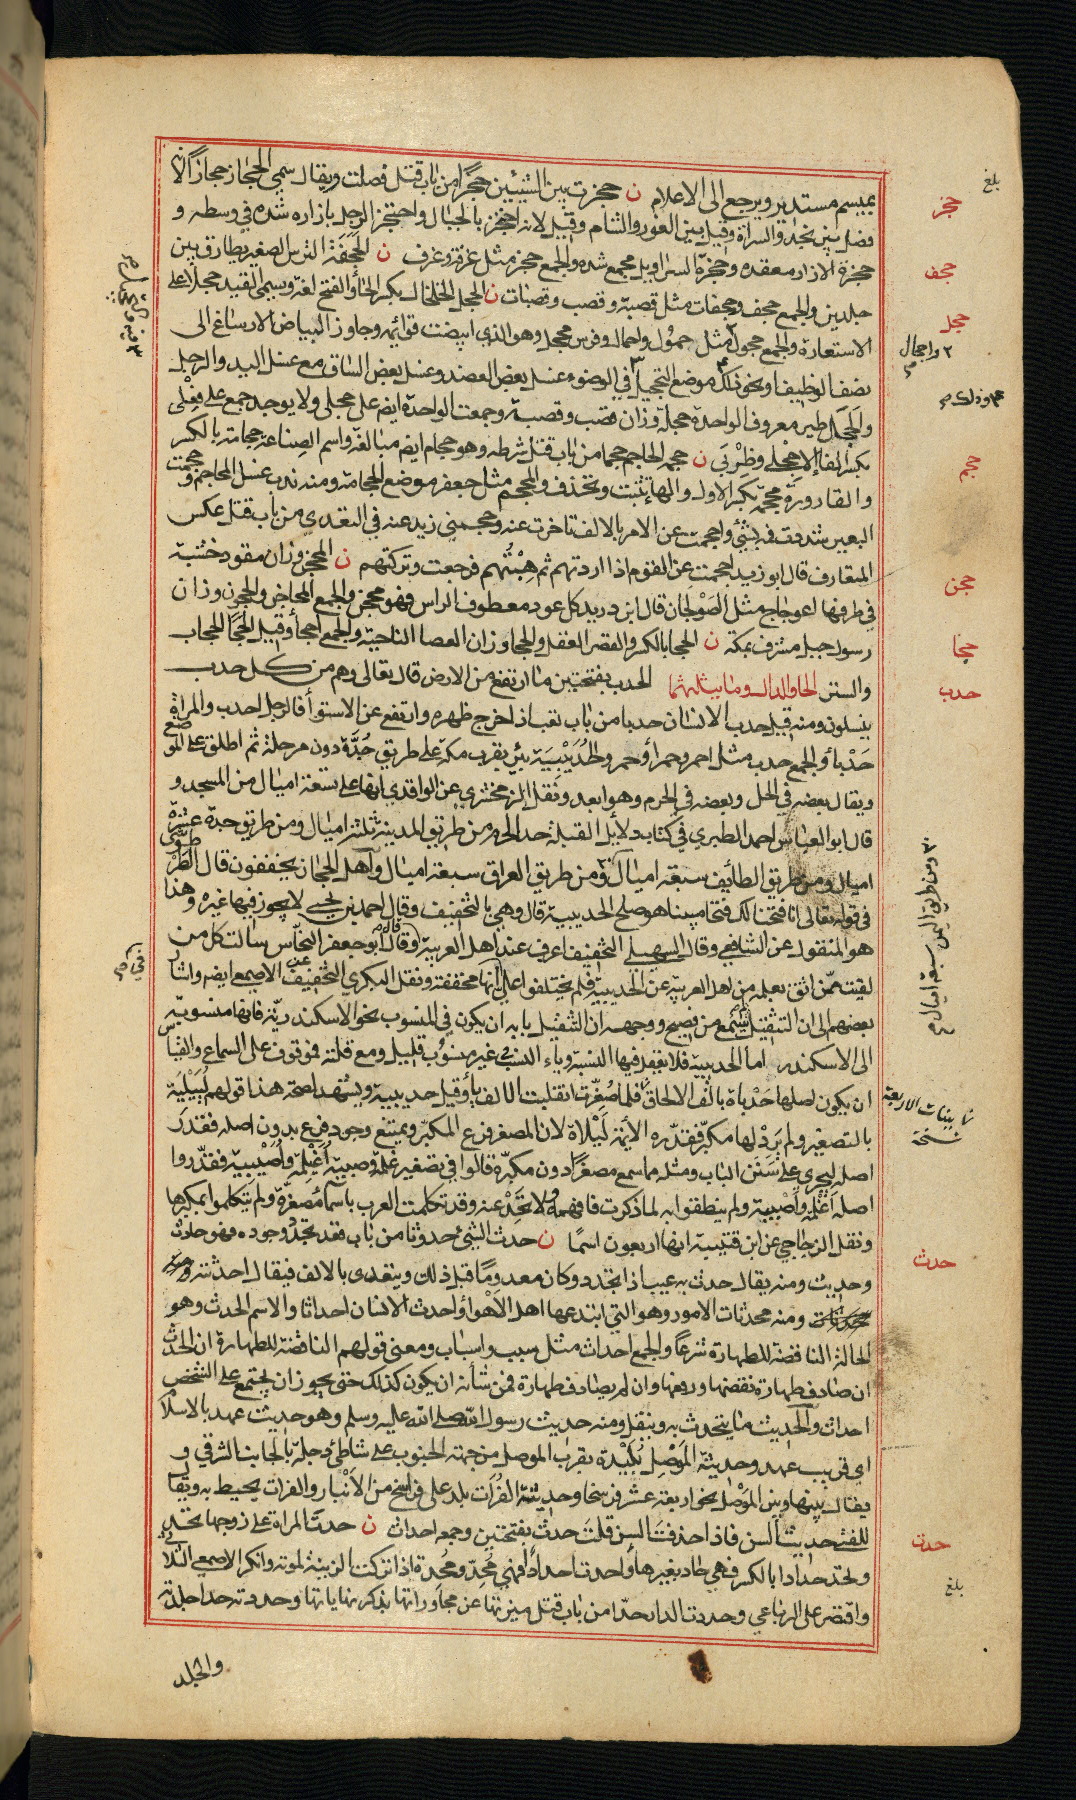 بميسم مستدير ويرجع الى الاعلام ن حجزت بين الشيئين حجزًا من باب قتل فصلت ويقال سمي الحجاز حجازًا لانه
فصل بين نجد والسراة وقيل بين الغور والشام وقيل لانه احتجز بالجبال واحتجز الرجل بازاره شده في وسطه و
حجزة الازار معقده وحجزة السراويل مجمع شده والجمع حجز مثل غرفة وغرف ن الحَجَفَة الترس الصغير يطارق بين
جلدين والجمع حجف وحجفات مثل قصبة وقصب وقصبات ن الحجل الخلخال بكسر الحاء والفتح لغة ويسمى القيد حجلا على
الاستعارة والجمع حجول مثل حمول واحمال وفرس محجل وهو الذي ابيضت قوائمه وجاوز البياض الارساغ الى
نصف الوظيف او نحو ذلك موضع التحجيل في الوضوء غسل بعض العضد وغسل بعض الساق مع غسل اليد والرجل
والحَجَل طير معروف الواحدة حجلة وزان قصب وقصبة وجمعت الواحدة ايضا على حجلى ولا يوجد جمع على فِعْلى
بكسر الفاء الا حجلى وظِرْبى ن حجمه الحاجم حجما من باب قتل شرطه وهو حجام ايضا مبالغة واسم الصناعة حجامة بالكسر
والقارورة محجمة بكسر الاول والهاء تثبت وتحذف والمحجم مثل جعفر موضع الحجامة ومنه ندب غسل المحاجم وحجمت
البعير شددت فمه بشئ واحجمت عن الامر بالالف تاخرت عنه وحجمني زيد عنه في التعدي من باب قتل عكس
المتعارف قال ابو زيد احجمت عن القوم اذا اردتهم ثم هِبْتُهم فرجعت وتركتهم ن المحجن وزان مقود خشبة
في طرفها اعوجاج مثل الصَوْلجان قال ابن دريد كل عود معطوف الراس فهو محجن والجمع المحاجن والحجون وزان
رسول جبل مشرف بمكة ن الحجا بالكسر والقصر العقل والحجا وزان العصا الناحية والجمع احجاء وقيل الحجا الحجاب
والستر الحاء والدال وما يثلثهما الحدب بفتحتين ما ارتفع من الارض قال تعالى وهم من كل حدب
ينسلون ومنه قيل حدب الانسان حدبا من باب تعب اذا خرج ظهره وارتفع عن الاستواء فالرجل احدب والمراة
حَدْباء والجمع حدب مثل احمر وحمراء وحمر والحُدَيْبِيَة بئر بقرب مكة على طريق جُدَّة دون مرحلة ثم اطلق على الموضع
ويقال بعضه في الحل وبعضه في الحرم وهو ابعد ونقل الزمخشري عن الواقدي انها على تسعة اميال من المسجد و
قال ابو العباس احمد الطبري في كتاب دلايل القبلة حد الحرم من طريق المدينة ثلثة اميال ومن طريق جدة عشرة
اميال ومن طريق الطائف سبعة اميال ومن طريق العراق سبعة اميال واهل الحجاز يخففون قال الطرطوشي
في قوله تعالى انا فتحنا لك فتحا مبينا هو صلح الحديبية قال وهي بالتخفيف وقال احمد بن يحيى لا يجوز فيها غيره وهذا
هو المنقول عن الشافعي وقال السهيلي التخفيف اعرف عند اهل العربية وقال ابو جعفر النحاس سالت كل من
لقيت ممّن اثق بعلمه من اهل العربية عن الحديبية فلم يختلفوا علي انها مخففة ونقل البكري التخفيف عن الاصمعي ايضا واشار
بعضهم الى ان التثقيل لم يُسْمَع من فصيح ووجهه ان التثقيل بابه ان يكون في المنسوب نحو الاسكندرية فانها منسوبة
الى الاسكندر اما الحديبية فلا يعقل فيها النسبة وياء النسب في غير منسوب قليل ومع قلته فموقوف على السماع والقياس
ان يكون اصلها حَدْباة بالف الالحاق فلما صُغّرت انقلبت الالف ياء وقيل حديبية ويشهد لصحة هذا قولهم لُيَيْلِيَة
بالتصغير ولم يَرِدْ لها مكبّر فقدّره الائمة لَيْلاة لان المصغر فرع المكبّر ويمتنع وجود فرع بدون اصله فقدر
اصله ليجري على سَنَن الباب ومثله ما سمع مصغرًا دون مكبره قالوا في تصغير غلمة وصبية اُغَيْلِمَة واُصَيْبِية فقدّروا
اصله اَغْلِمَة واَصْبِية ولم ينطقوا به لما ذكرت فافهمه ولا تَحِدْ عنه وقد تكلمت العرب باسماء مُصغرّة ولم يتكلموا بمكبرها
ونقل الزجاجي عن ابن قتيبة انها اربعون اسمًا ن حدث الشئ حدوثا من باب قعد تجدّد وجوده فهو حادث
وحديث ومنه يقال حدث به عيب اذا تجدد وكان معدومًا قبل ذلك ويتعدى بالالف فيقال احدثته
ومنه محدثات الامور وهو التي ابتدعها اهل الاَهْواء واحدث الانسان احداثا والاسم الحدث وهو
الحالة الناقضة للطهارة شرعًا والجمع احداث مثل سبب واسباب ومعنى قولهم الناقضة للطهارة ان الحدث
ان صادف طهارة نقضها ورفعها وان لم يصادف طهارة فمن شأنه ان يكون كذلك حتى يجوز ان يجتمع على الشخص
احداث والحديث ما يتحدث به وينقل ومنه حديث رسول الله صلى الله عليه وسلم وهو حديث عهد بالاسلام
اي قريب عهد وحديثة المَوْصِل بُلَيْدة بقرب الموصل من جهة الجنوب على شاطئ دجلة بالجانب الشرقي و
يقال بينها وبين المَوْصل نحو اربعة عشر فرسخا وحديثة الفُرَات بلد على فراسخ من الاَنْبار والفرات يحيط به ويقال
للفتى حديث السن فاذا حذفت السن قلت حدث بفتحتين وجمعه احداث ن حدت المراة على زوجها تحد
وتحد حدادا بالكسر فهي حاد بغير هاء واحدت احدادا فهي مُحِدّ ومُحِدة اذا تركت الزينة لموته وانكر الاصمعي الثلاثي
واقتصر على الرباعي وحددت الدار حدّا من باب قتل ميزتها عن مجاوراتها بذكر نهاياتها وحددته حدا جلدته
والحد
بلغ
حجز
حجف
حجل
٢ واحجال
وذلك
حجم
حجن
حجا
حدب
٣ ومن طريق اليمن سبعة اميال
نسخة
حدث
حدت
بلغ